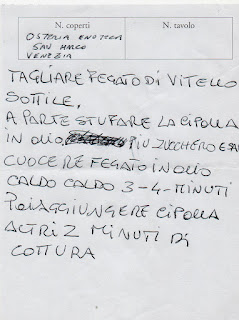 N. coperti N. tavolo
OSTERIA ENOTECA
SAN MARCO
VENEZIA
TAGLIARE FEGATO DI VITELLO
SOTTILE,
A PARTE STUFARE LA CIPOLLA
IN OLIO PIU ZUCCHERO E
CUOCERE FEGATO IN OLIO
CALDO CALDO 3-4-MINUTI
POI AGGIUNGERE CIPOLLA
ALTRI 2 MINUTI DI
COTTURA